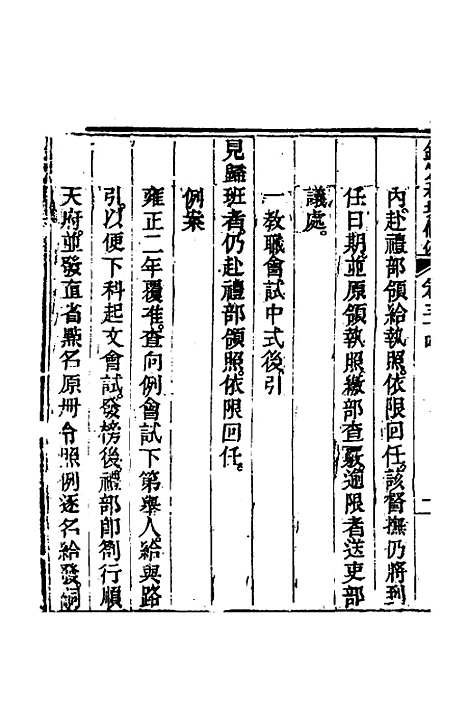 內赴禮部領給執照依限回任該督撫仍將到
任日期並原領執照繳部查覈逾限者送吏部
議處
一教職會試中式後引
見歸班者仍赴禮部領照依限回任
例案
雍正二年覆准查向例會試下第舉人給與路
引以便下科起文會試發榜後禮部卽劄行順
天府並發直省點名原册令照例逐名給發詞